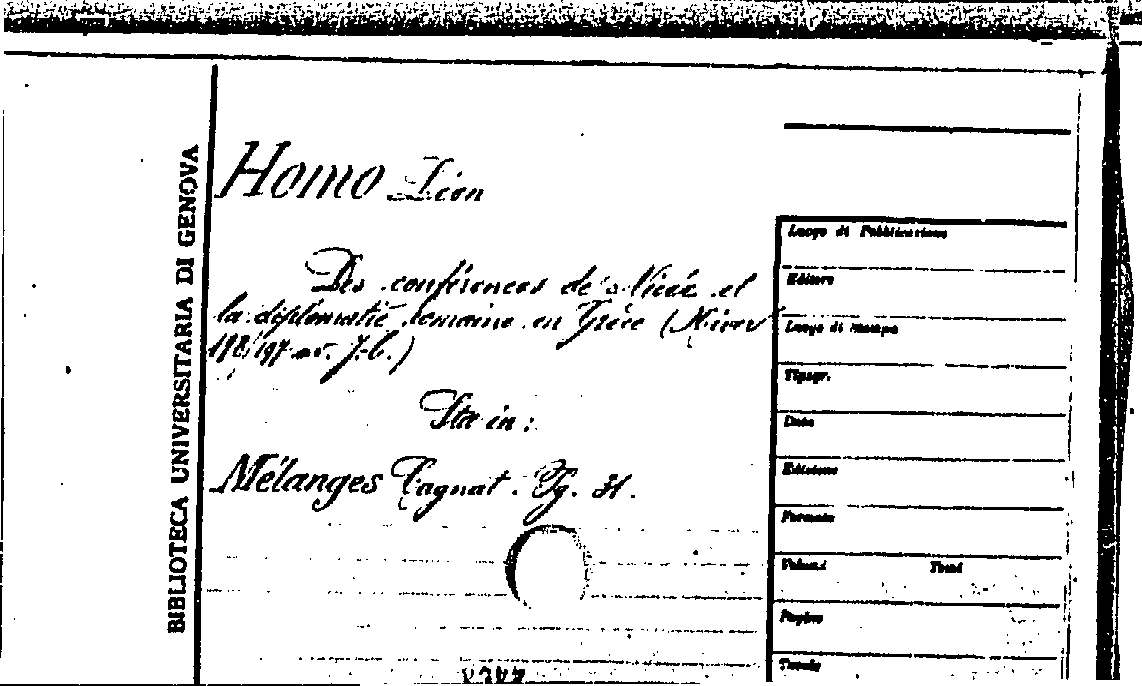 BIBLIOTECA UNIVERSITARIA DI GENOVA
Homo Léon
Des conférences de Nicée et
la diplomatie romaine en Grèce (Hiver
198/197 av. J.-C.)
Sta in:
Mélanges Cagnat. Pg. 31.
Luogo di Pubblicazione
Editore
Luogo di stampa
Tipogr.
Data
Edizione
Formato
Volumi Tomi
Pagine
Tavole